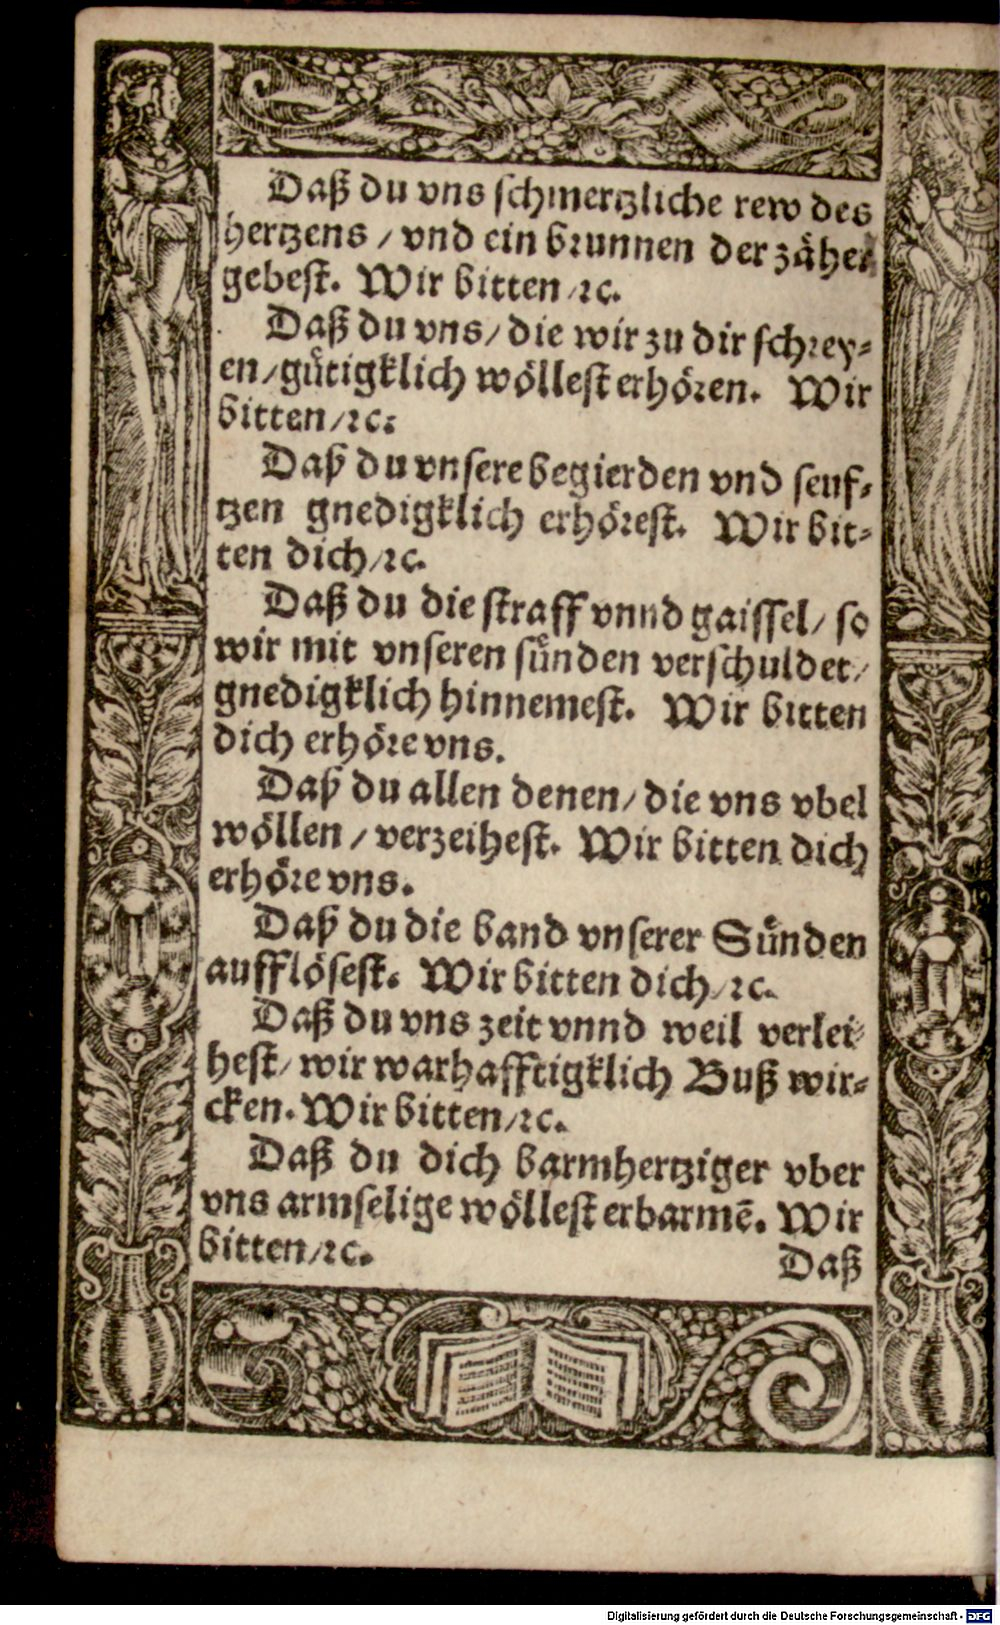 Daß du vns schmertzliche rew des
hertzens / vnd ein brunnen der zäher
gebest. Wir bitten / ꝛc.
Daß du vns / die wir zu dir schrey⸗
en / gütigklich wöllest erhören. Wir
bitten / ꝛc:
Daß du vnsere begierden vnd seuf⸗
tzen gnedigklich erhörest. Wir bit⸗
ten dich / ꝛc.
Daß du die straff vnnd gaissel / so
wir mit vnseren sünden verschuldet /
gnedigklich hinnemest. Wir bitten
dich erhöre vns.
Daß du allen denen / die vns vbel
wöllen / verzeihest. Wir bitten dich
erhöre vns.
Daß du die band vnserer Sünden
aufflösest. Wir bitten dich / ꝛc.
Daß du vns zeit vnnd weil verlei⸗
hest / wir warhafftigklich Buß wir⸗
cken. Wir bitten / ꝛc.
Daß du dich barmhertziger vber
vns armselige wöllest erbarmē. Wir
bitten / ꝛc.
Daß
Digitalisierung gefördert durch die Deutsche Forschungsgemeinschaft - DFG